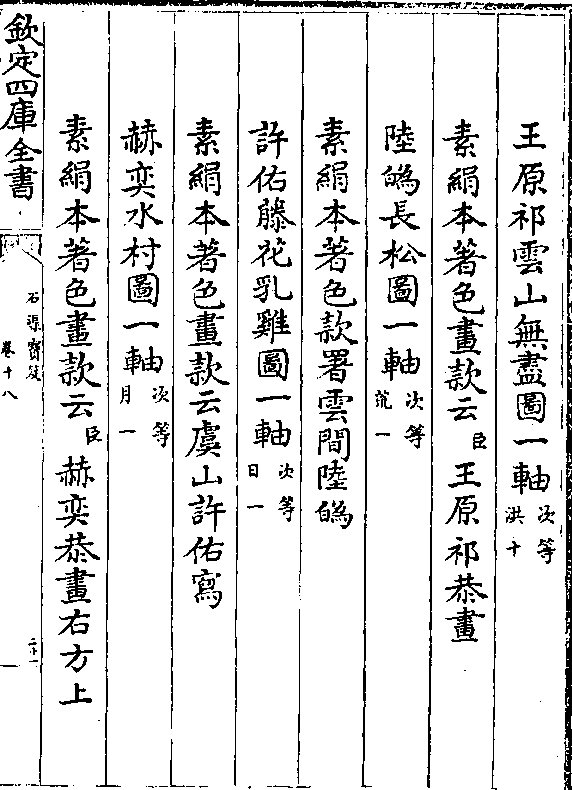 王原祁雲山無盡圖一軸 次等 洪十
素絹本著色畫款云 臣 王原祁恭畫
陸㒟長松圖一軸 次等 荒一
素絹本著色款署雲間陸㒟
許佑藤花乳雞圖一軸 次等 日一
素絹本著色畫款云虞山許佑寫
赫奕水村圖一軸 次等 月一
素絹本著色畫款云 臣 赫奕恭畫右方上
欽定四庫全書
石渠寶笈
卷十八